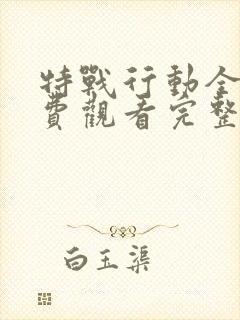 特戰行動全
費觀看完整
白玉渠